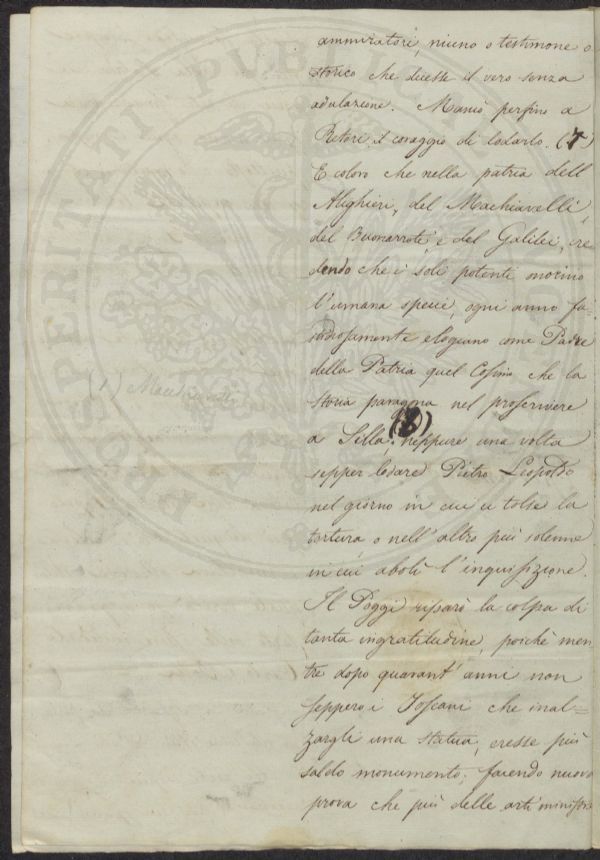 ammiratori, niuno o testimone o
storico che dicesse il vero senza
adulazione. Mancò perfino a
Retori il coraggio di lodarlo. (7)
E coloro che nella patria dell
Alighieri, del Machiavelli,
del Buonarroti e del Galilei, cre
dendo che i soli potenti onorino
l'umana specie, ogni anno fa-
stidiosamente elogiano come Padre
della Patria quel Cosimo che la
storia paragona nel proscrivere
a Silla, (8) neppure una volta
sepper lodare Pietro Leopoldo
nel giorno in cui ei tolse la
tortura o nell'altro più solenne
in cui abolì l'inquisizione.
Il Poggi riparò la colpa di
tanta ingratitudine, poichè men
tre dopo quarant'anni non
seppero i Toscani che inal=
zargli una statua, eresse più
saldo monumento; facendo nuova
prova che più delle arti ministre
(1)
PROSPERITATI PUBLICAE